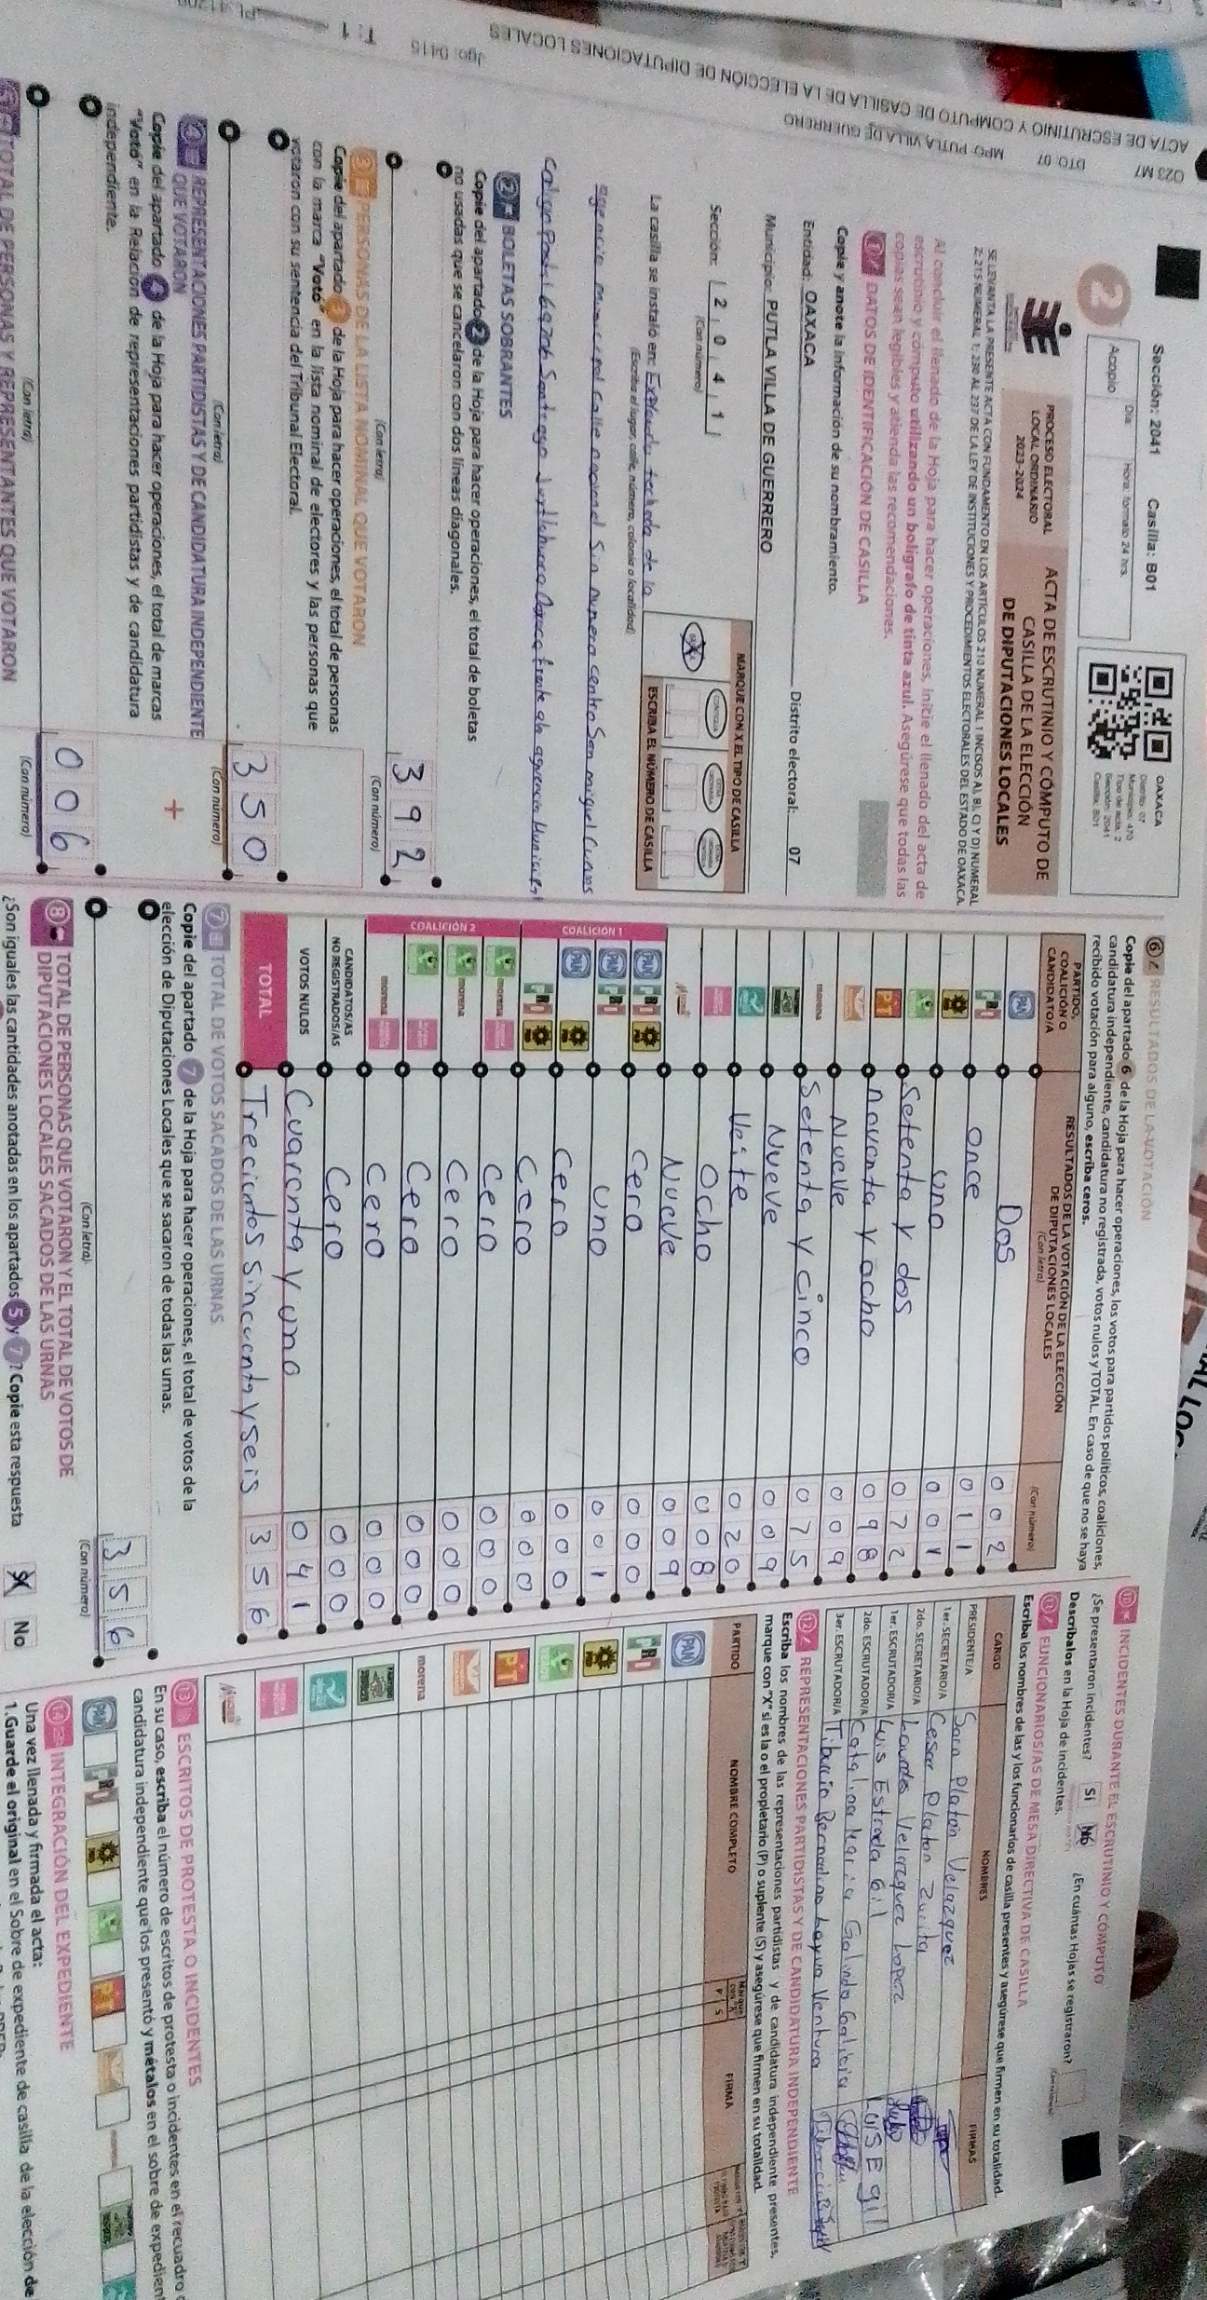 ACTA DE ESCRUTINIO Y CÓMPUTO DE CASILLA DE LA ELECCIÓN DE DIPUTACIONES LOCALES
023 M7
DTO: 07
MPO: PUTLA VILLA DE GUERRERO
Jgo: 0415
T: 1
Sección: 2041 Casilla: B01
Día Hora: formato 24 hrs.
Acopio
2
OAXACA
Distrito: 07
Municipio: 470
Tipo de acta: 2
Sección: 2041
Casilla: B01
PROCESO ELECTORAL
LOCAL ORDINARIO
2023-2024
ACTA DE ESCRUTINIO Y CÓMPUTO DE
CASILLA DE LA ELECCIÓN
DE DIPUTACIONES LOCALES
SE LEVANTA LA PRESENTE ACTA CON FUNDAMENTO EN LOS ARTÍCULOS 210 NUMERAL 1 INCISOS A), B), C) Y D) NUMERAL
2; 215 NUMERAL 1; 230 AL 237 DE LA LEY DE INSTITUCIONES Y PROCEDIMIENTOS ELECTORALES DEL ESTADO DE OAXACA.
Al concluir el llenado de la Hoja para hacer operaciones, inicie el llenado del acta de
escrutinio y cómputo utilizando un bolígrafo de tinta azul. Asegúrese que todas las
copias sean legibles y atienda las recomendaciones.
1 DATOS DE IDENTIFICACIÓN DE CASILLA
Copie y anote la información de su nombramiento.
Entidad: OAXACA Distrito electoral: 07
Municipio: PUTLA VILLA DE GUERRERO
Sección: 2 0 4 1
(Con número)
MARQUE CON X EL TIPO DE CASILLA
ESCRIBA EL NÚMERO DE CASILLA
La casilla se instaló en: Explanada techada de la
(Escriba el lugar, calle, número, colonia o localidad)
agencia municipal Calle nacional Sin numero centro San miguel Cuevas
2 BOLETAS SOBRANTES
Copie del apartado 2 de la Hoja para hacer operaciones, el total de boletas
no usadas que se cancelaron con dos líneas diagonales.
392
(Con letra) (Con número)
3 PERSONAS DE LA LISTA NOMINAL QUE VOTARON
Copie del apartado 3 de la Hoja para hacer operaciones, el total de personas
con la marca "Votó" en la lista nominal de electores y las personas que
votaron con su sentencia del Tribunal Electoral.
350
(Con letra) (Con número)
4 REPRESENTACIONES PARTIDISTAS Y DE CANDIDATURA INDEPENDIENTE
QUE VOTARON
Copie del apartado 4 de la Hoja para hacer operaciones, el total de marcas
"Votó" en la Relación de representaciones partidistas y de candidatura
independiente.
+
006
(Con letra) (Con número)
5 TOTAL DE PERSONAS Y REPRESENTANTES QUE VOTARON
6 RESULTADOS DE LA VOTACIÓN
Copie del apartado 6 de la Hoja para hacer operaciones, los votos para partidos políticos, coaliciones,
candidatura independiente, candidatura no registrada, votos nulos y TOTAL. En caso de que no se haya
recibido votación para alguno, escriba ceros.
PARTIDO,
COALICIÓN O
CANDIDATO/A
RESULTADOS DE LA VOTACIÓN DE LA ELECCIÓN
DE DIPUTACIONES LOCALES
(Con letra) (Con número)
PAN Dos 002
PRI once 011
PRD uno 001
Setenta y dos 072
PT noventa y ocho 098
Nueve 009
morena Setenta y cinco 075
Nueve 009
Veite 020
Ocho 008
Nueve 009
COALICIÓN 1
PAN PRI PRD Cero 000
PAN PRI uno 001
PAN PRD Cero 000
PRI PRD Cero 000
COALICIÓN 2
morena Cero 000
morena Cero 000
Cero 000
morena Cero 000
CANDIDATOS/AS
NO REGISTRADOS/AS Cero 000
VOTOS NULOS Cuarenta y uno 041
TOTAL Trecientos sincuenta y seis 356
7 TOTAL DE VOTOS SACADOS DE LAS URNAS
Copie del apartado 7 de la Hoja para hacer operaciones, el total de votos de la
elección de Diputaciones Locales que se sacaron de todas las urnas.
356
(Con letra) (Con número)
8 TOTAL DE PERSONAS QUE VOTARON Y EL TOTAL DE VOTOS DE
DIPUTACIONES LOCALES SACADOS DE LAS URNAS
¿Son iguales las cantidades anotadas en los apartados 5 y 7? Copie esta respuesta No
10 INCIDENTES DURANTE EL ESCRUTINIO Y CÓMPUTO
¿Se presentaron incidentes? Sí No ¿En cuántas Hojas se registraron?
Descríbalos en la Hoja de incidentes.
11 FUNCIONARIOS/AS DE MESA DIRECTIVA DE CASILLA
Escriba los nombres de las y los funcionarios de casilla presentes y asegúrese que firmen en su totalidad.
CARGO NOMBRES FIRMAS
PRESIDENTE/A Sara Platón Velazquez
1er. SECRETARIO/A Cesar Platon Zurita
2do. SECRETARIO/A Lourdes Velazquez Lopez
1er. ESCRUTADOR/A Luis Estrada Gill LUIS E gill
2do. ESCRUTADOR/A Catalina Maria Galindo Galicia
3er. ESCRUTADOR/A Tiburcio Bernardino Ventura
12 REPRESENTACIONES PARTIDISTAS Y DE CANDIDATURA INDEPENDIENTE
Escriba los nombres de las representaciones partidistas y de candidatura independiente presentes,
marque con "X" si es la o el propietario (P) o suplente (S) y asegúrese que firmen en su totalidad.
PARTIDO NOMBRE COMPLETO P S FIRMA
PAN
PRI
PRD
PT
morena
13 ESCRITOS DE PROTESTA O INCIDENTES
En su caso, escriba el número de escritos de protesta o incidentes en el recuadro
candidatura independiente que los presentó y métalos en el sobre de expedien
PAN PRI PRD PT
14 INTEGRACIÓN DEL EXPEDIENTE
Una vez llenada y firmada el acta:
1.Guarde el original en el Sobre de expediente de casilla de la elección de